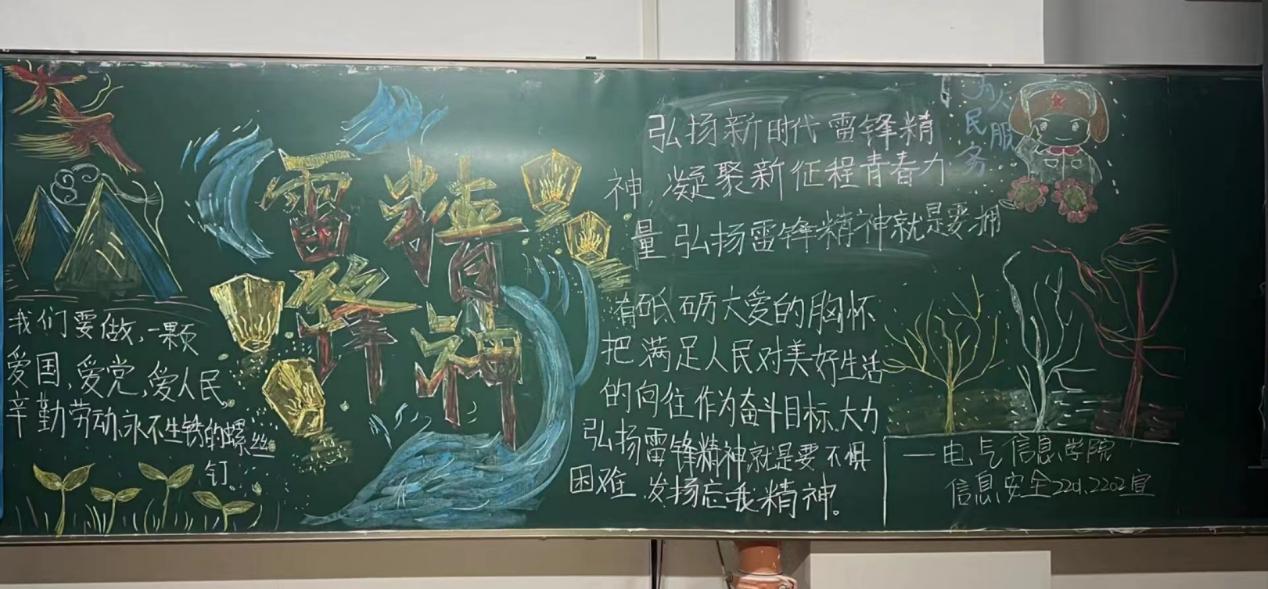 雷锋
精神
我们要做,一颗
爱国、爱党、爱人民,
辛勤劳动,永不生锈的螺丝
钉
弘扬新时代雷锋精
神,凝聚新征程青春力
量 弘扬雷锋精神就是要拥
有砥砺大爱的胸怀
把满足人民对美好生活
的向往作为奋斗目标、大力
弘扬雷锋精神就是要不惧
困难、发扬忘我精神。
为人
民服
务
——电气信息学院
信息安全2201、2202宣